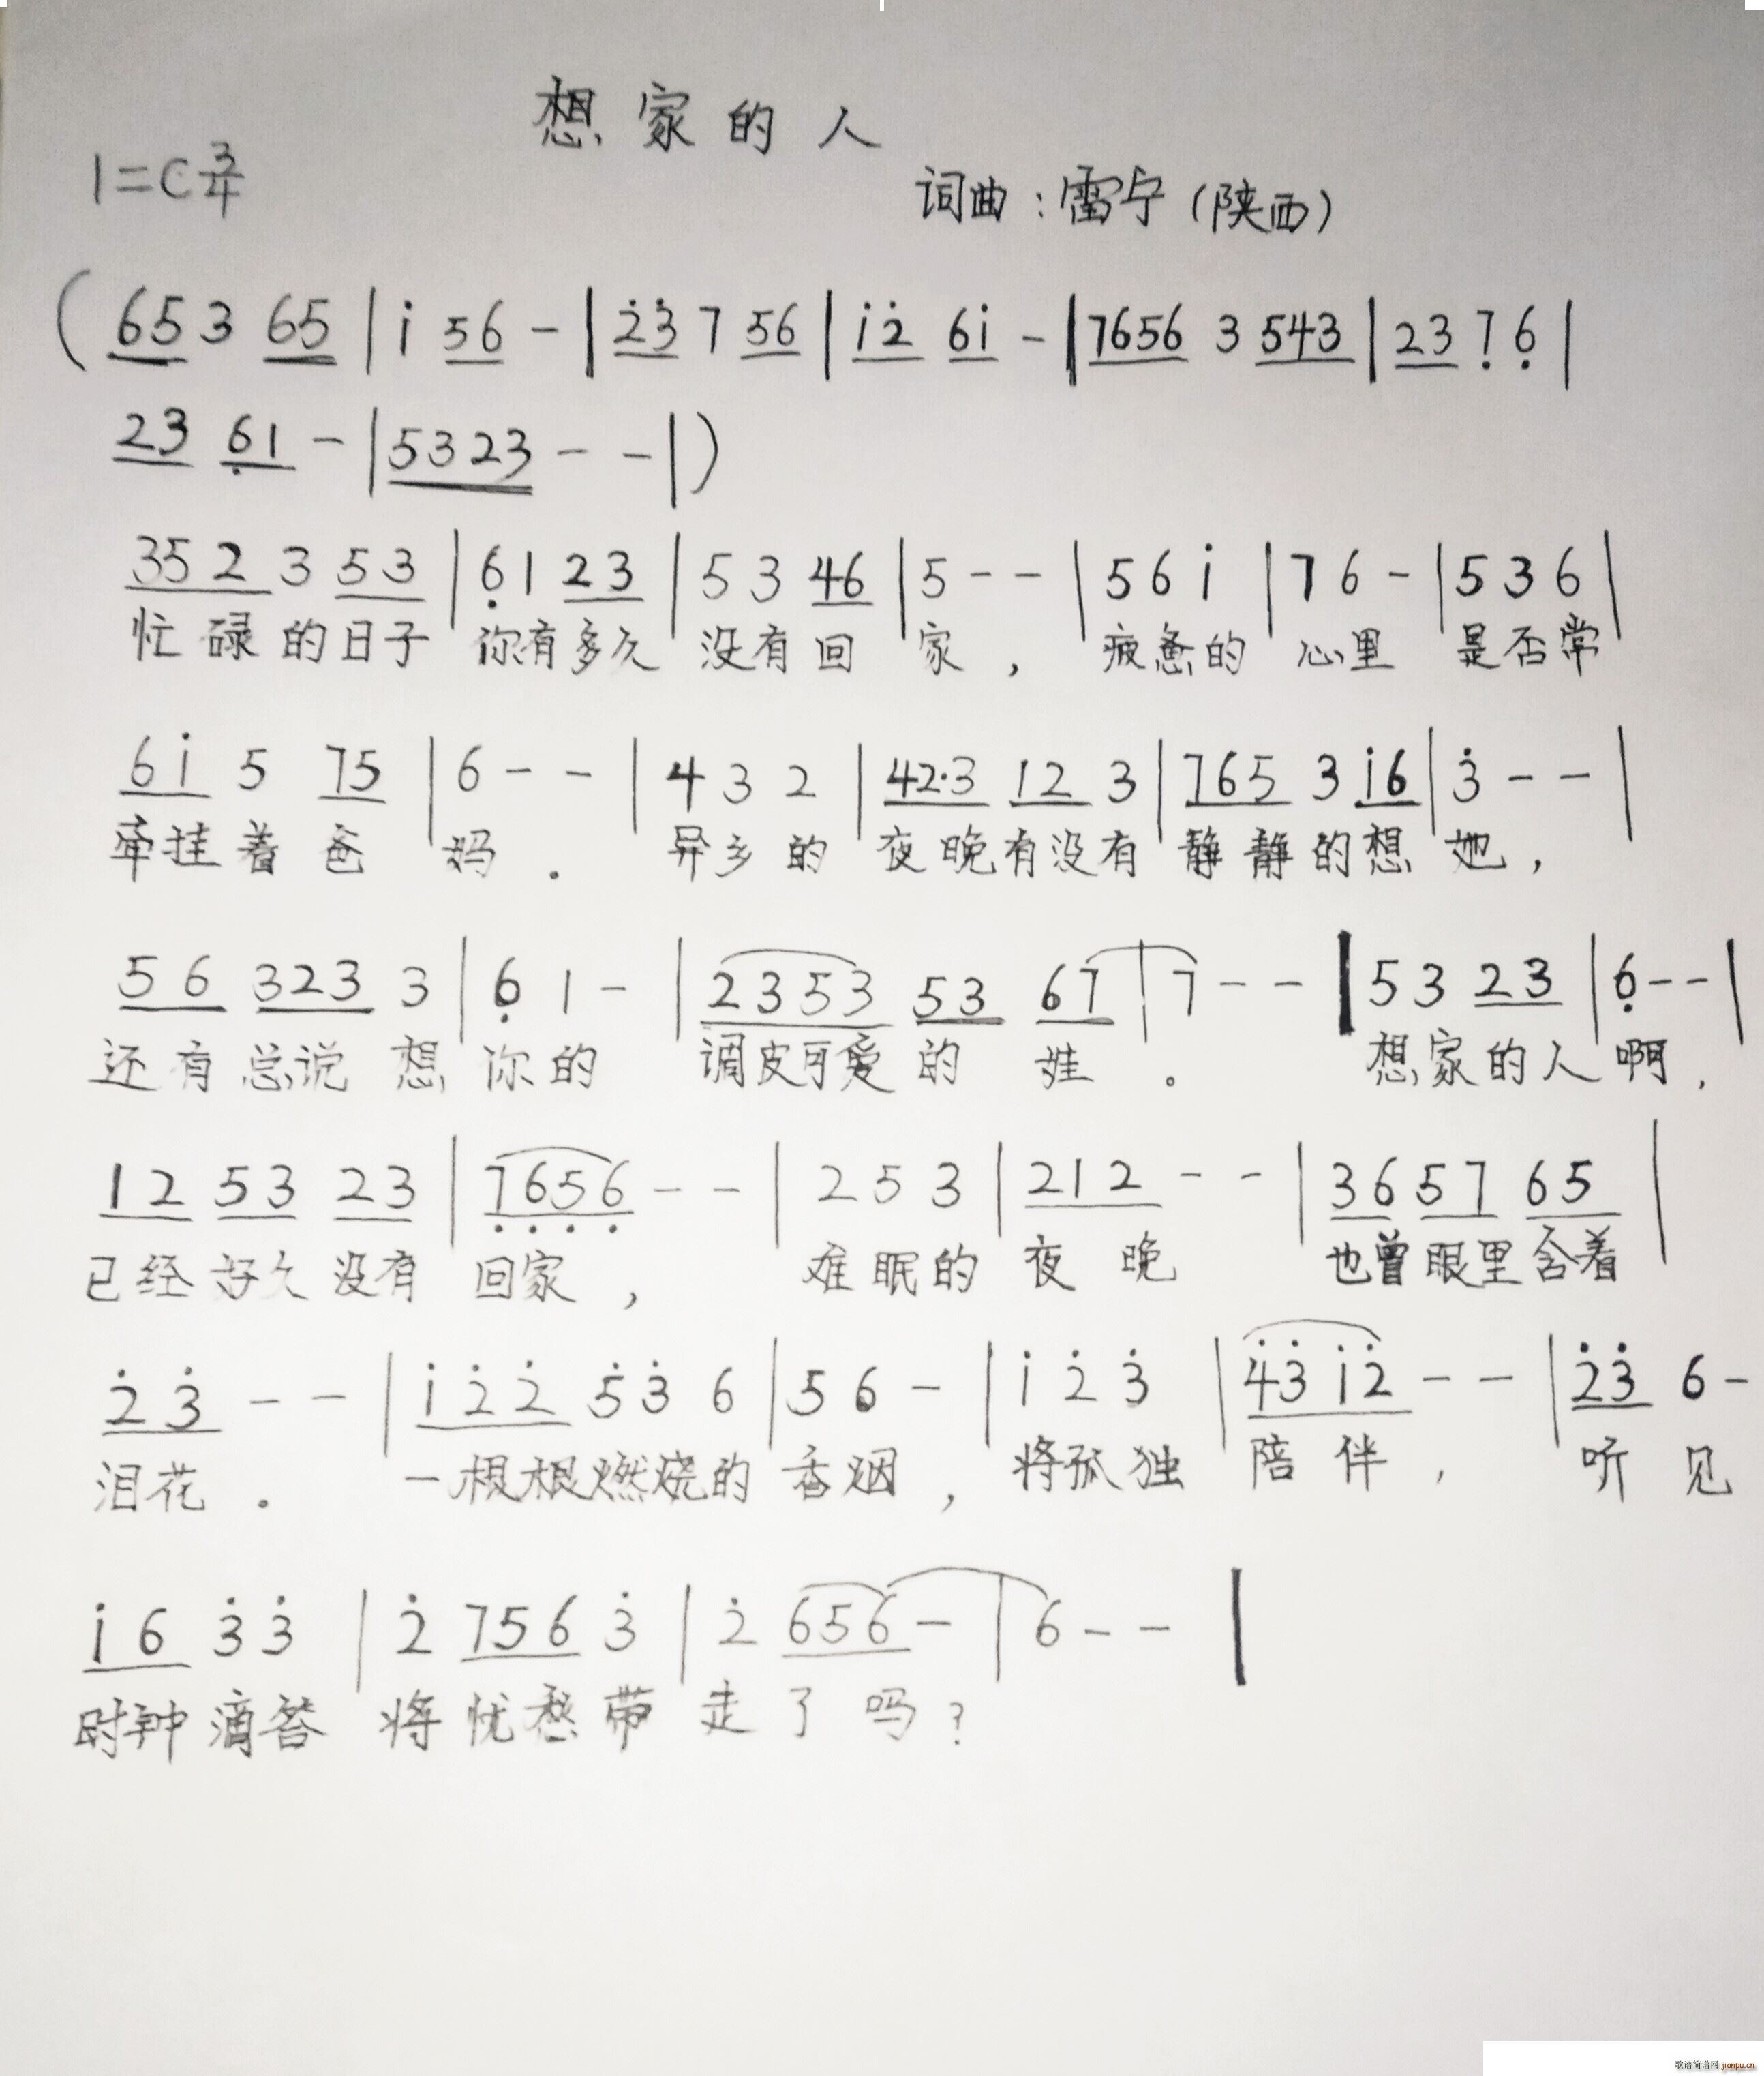 想家的人
1=C 3/4
词曲：雷宁（陕西）
( 65 3 65 | i 56 - | 2̇3̇ 7 56 | i2̇ 6i - | 7656 3 543 | 23 7̣ 6̣ |
23 6̣1 - | 5323 - - | )
352 3 53 | 6̣ 1 23 | 5 3 46 | 5 - - | 5 6 i | 7 6 - | 5 3 6 |
忙碌的日子 你有多久 没有回 家， 疲惫的 心里 是否常
6i 5 75 | 6 - - | 4 3 2 | 42·3 12 3 | 765 3 i6 | 3̇ - - |
牵挂着爸 妈. 异乡的 夜晚有没有 静静的想 她，
56 323 3 | 6̣ 1 - | 2353 53 67 | 7 - - | 5 3 23 | 6̣ - - |
还有总说想 你的 调皮可爱的 娃。 想家的人 啊，
12 53 23 | 7̣6̣5̣6̣ - - | 2 5 3 | 212 - - | 36 57 65 |
已经好久没有 回家， 难眠的 夜晚 也曾眼里含着
2̇3̇ - - | i2̇2̇ 5̇3̇ 6 | 5 6 - | i 2̇ 3̇ | 4̇3̇i2̇ - - | 2̇3̇ 6 -
泪花. 一根根燃烧的 香烟， 将孤独 陪伴， 听见
i6 3̇3̇ | 2̇ 756 3̇ | 2̇ 656 - | 6 - - |
时钟滴答 将忧愁带 走了吗？
歌谱简谱网 jianpu.cn